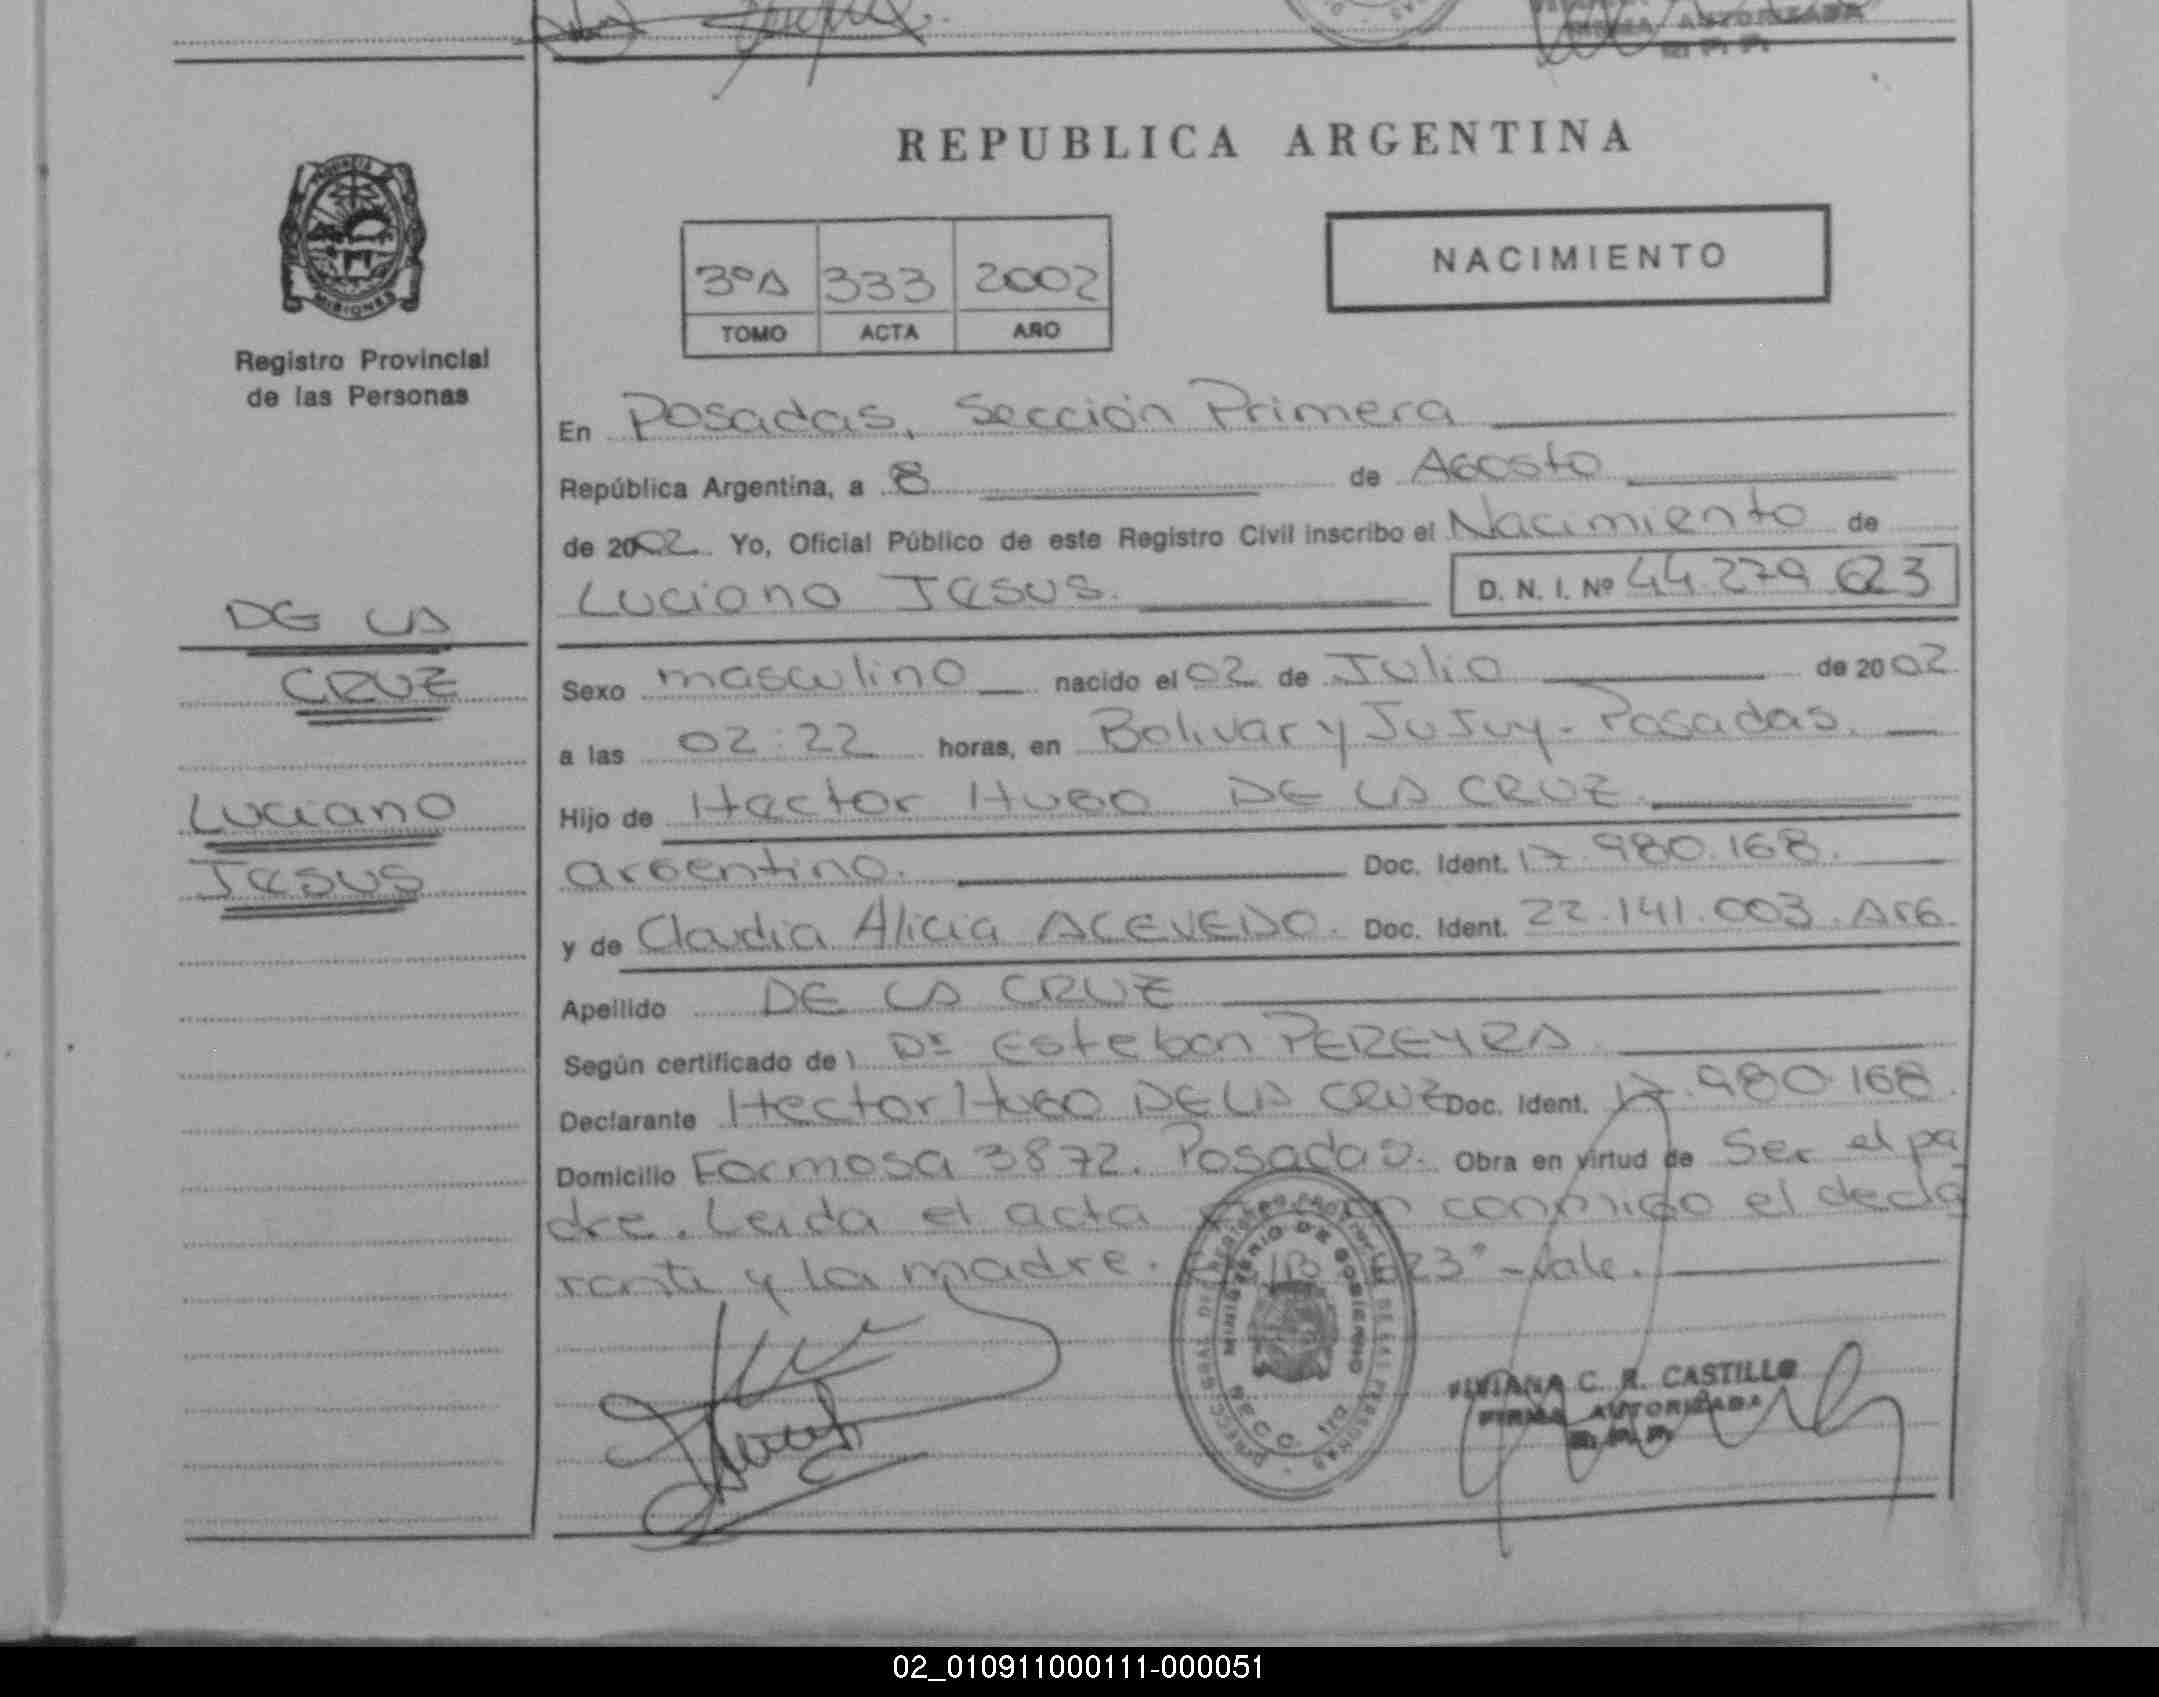 FIRMA AUTORIZADA
REPUBLICA ARGENTINA
MISIONES
Registro Provincial
de las Personas
3ºA 333 2002
TOMO ACTA AÑO
NACIMIENTO
En Posadas, Sección Primera
República Argentina, a 8 de Agosto
de 2002 Yo, Oficial Público de este Registro Civil inscribo el Nacimiento de
Luciano Jesus. D. N. I. Nº 44.279.623
DE LA
CRUZ
Luciano
Jesus
Sexo masculino nacido el 02 de Julio de 2002
a las 02:22 horas, en Bolivar y Jujuy - Posadas.
Hijo de Hector Hugo DE LA CRUZ.
argentino. Doc. Ident. 17.980.168.
y de Claudia Alicia ACEVEDO. Doc. Ident. 22.141.003. Arg.
Apellido DE LA CRUZ
Según certificado de Dr Esteban PEREYRA
Declarante Hector Hugo DE LA CRUZ Doc. Ident. 17.980.168.
Domicilio Formosa 3872. Posadas. Obra en virtud de Ser el pa
dre. Leida el acta conmigo el decla
rante y la madre. 23" - Vale.
MINISTERIO DE GOBIERNO
VIVIANA C. R. CASTILLO
FIRMA AUTORIZADA
R. P. P.
02_010911000111-000051